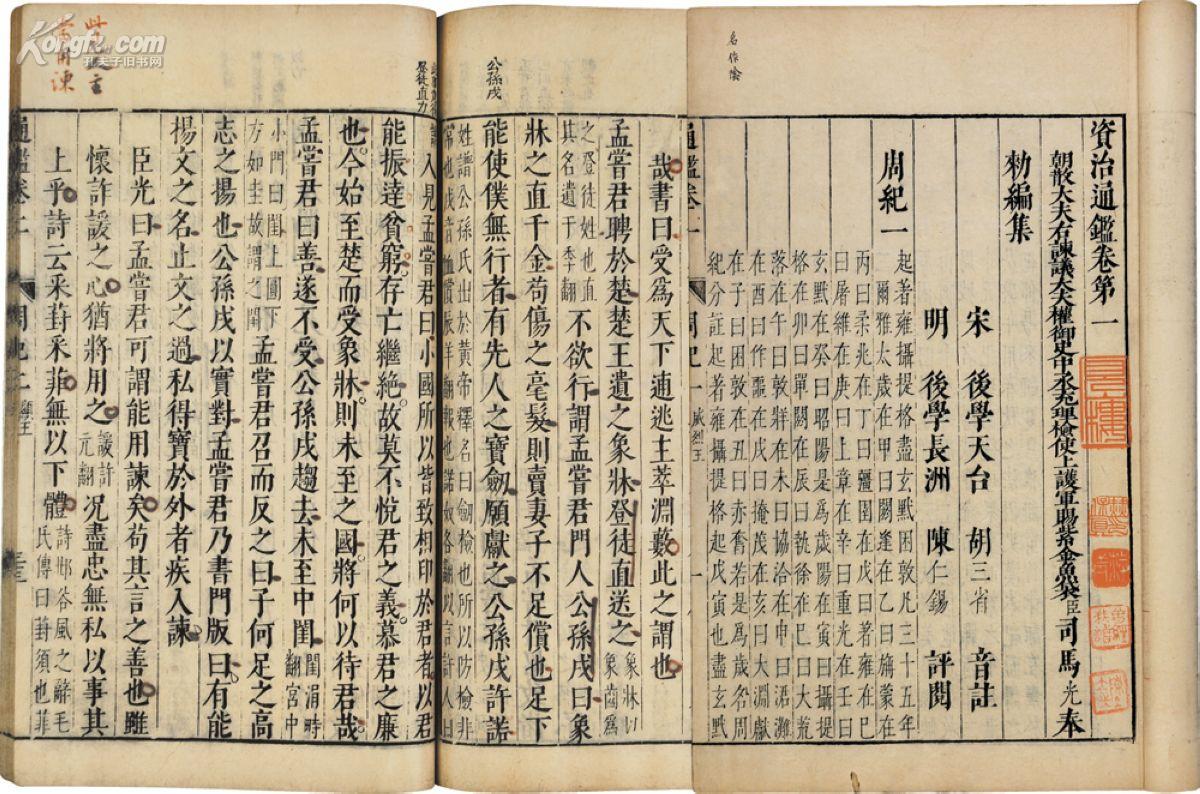 資治通鑑卷第一
朝散大夫右諫議大夫權御史中丞充理檢使上護軍賜紫金魚袋臣司馬光奉
勑編集
宋 後學天台 胡三省 音註
明 後學長洲 陳仁錫 評閱
周紀一
起著雍攝提格盡玄黓困敦凡三十五年
爾雅太歲在甲曰閼逢在乙曰旃蒙在
丙曰柔兆在丁曰彊圉在戊曰著雍在巳
曰屠維在庚曰上章在辛曰重光在壬曰
玄黓在癸曰昭陽是爲歲陽在寅曰攝提
格在卯曰單閼在辰曰執徐在巳曰大荒
落在午曰敦牂在未曰協洽在申曰涒灘
在酉曰作噩在戌曰掩茂在亥曰大淵獻
在子曰困敦在丑曰赤奮若是爲歲名周
紀分註起著雍攝提格起戊寅也盡玄黓
通鑑卷一 周紀一 威烈王 一
名作陰
哉書曰受爲天下逋逃主萃淵藪此之謂也
孟嘗君聘於楚楚王遺之象牀登徒直送之象牀以象齒爲
之登徒姓也直其名遺于季翻不欲行謂孟嘗君門人公孫戌曰象
牀之直千金苟傷之毫髮則賣妻子不足償也足下
能使僕無行者有先人之寶劒願獻之公孫戌許諾
姓譜公孫氏出於黃帝釋名曰劒檢也所以防檢非
常也戌音恤償辰羊翻報也諾奴各翻以言許人曰
諾入見孟嘗君曰小國所以皆致相印於君者以君
公孫戌
登徒直力
能振達貧窮存亡繼絶故莫不悅君之義慕君之廉
也今始至楚而受象牀則未至之國將何以待君哉
孟嘗君曰善遂不受公孫戌趨去未至中閨閨涓時翻宮中
小門曰閨上圜下方如圭故謂之閨孟嘗君召而反之曰子何足之高
志之揚也公孫戌以實對孟嘗君乃書門版曰有能
揚文之名止文之過私得寶於外者疾入諫
臣光曰孟嘗君可謂能用諫矣苟其言之善也雖
懷詐諼之心猶將用之諼許元翻況盡忠無私以事其
上乎詩云采葑采菲無以下體詩邶谷風之辭毛氏傳曰葑須也菲
通鑑卷二 周紀二 顯王
Kongfz.com
孔夫子旧书网